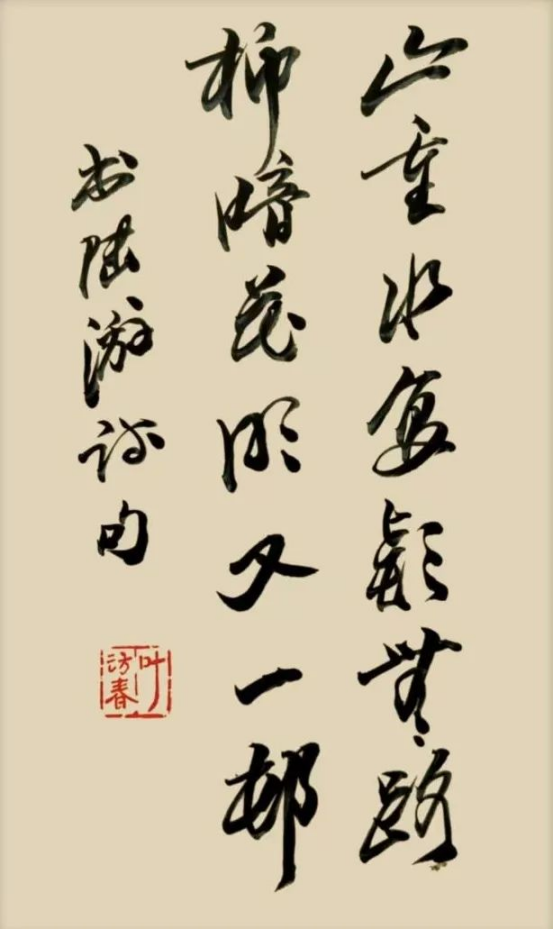 山重水复疑无路
柳暗花明又一邨
书陆游诗句
叶访春